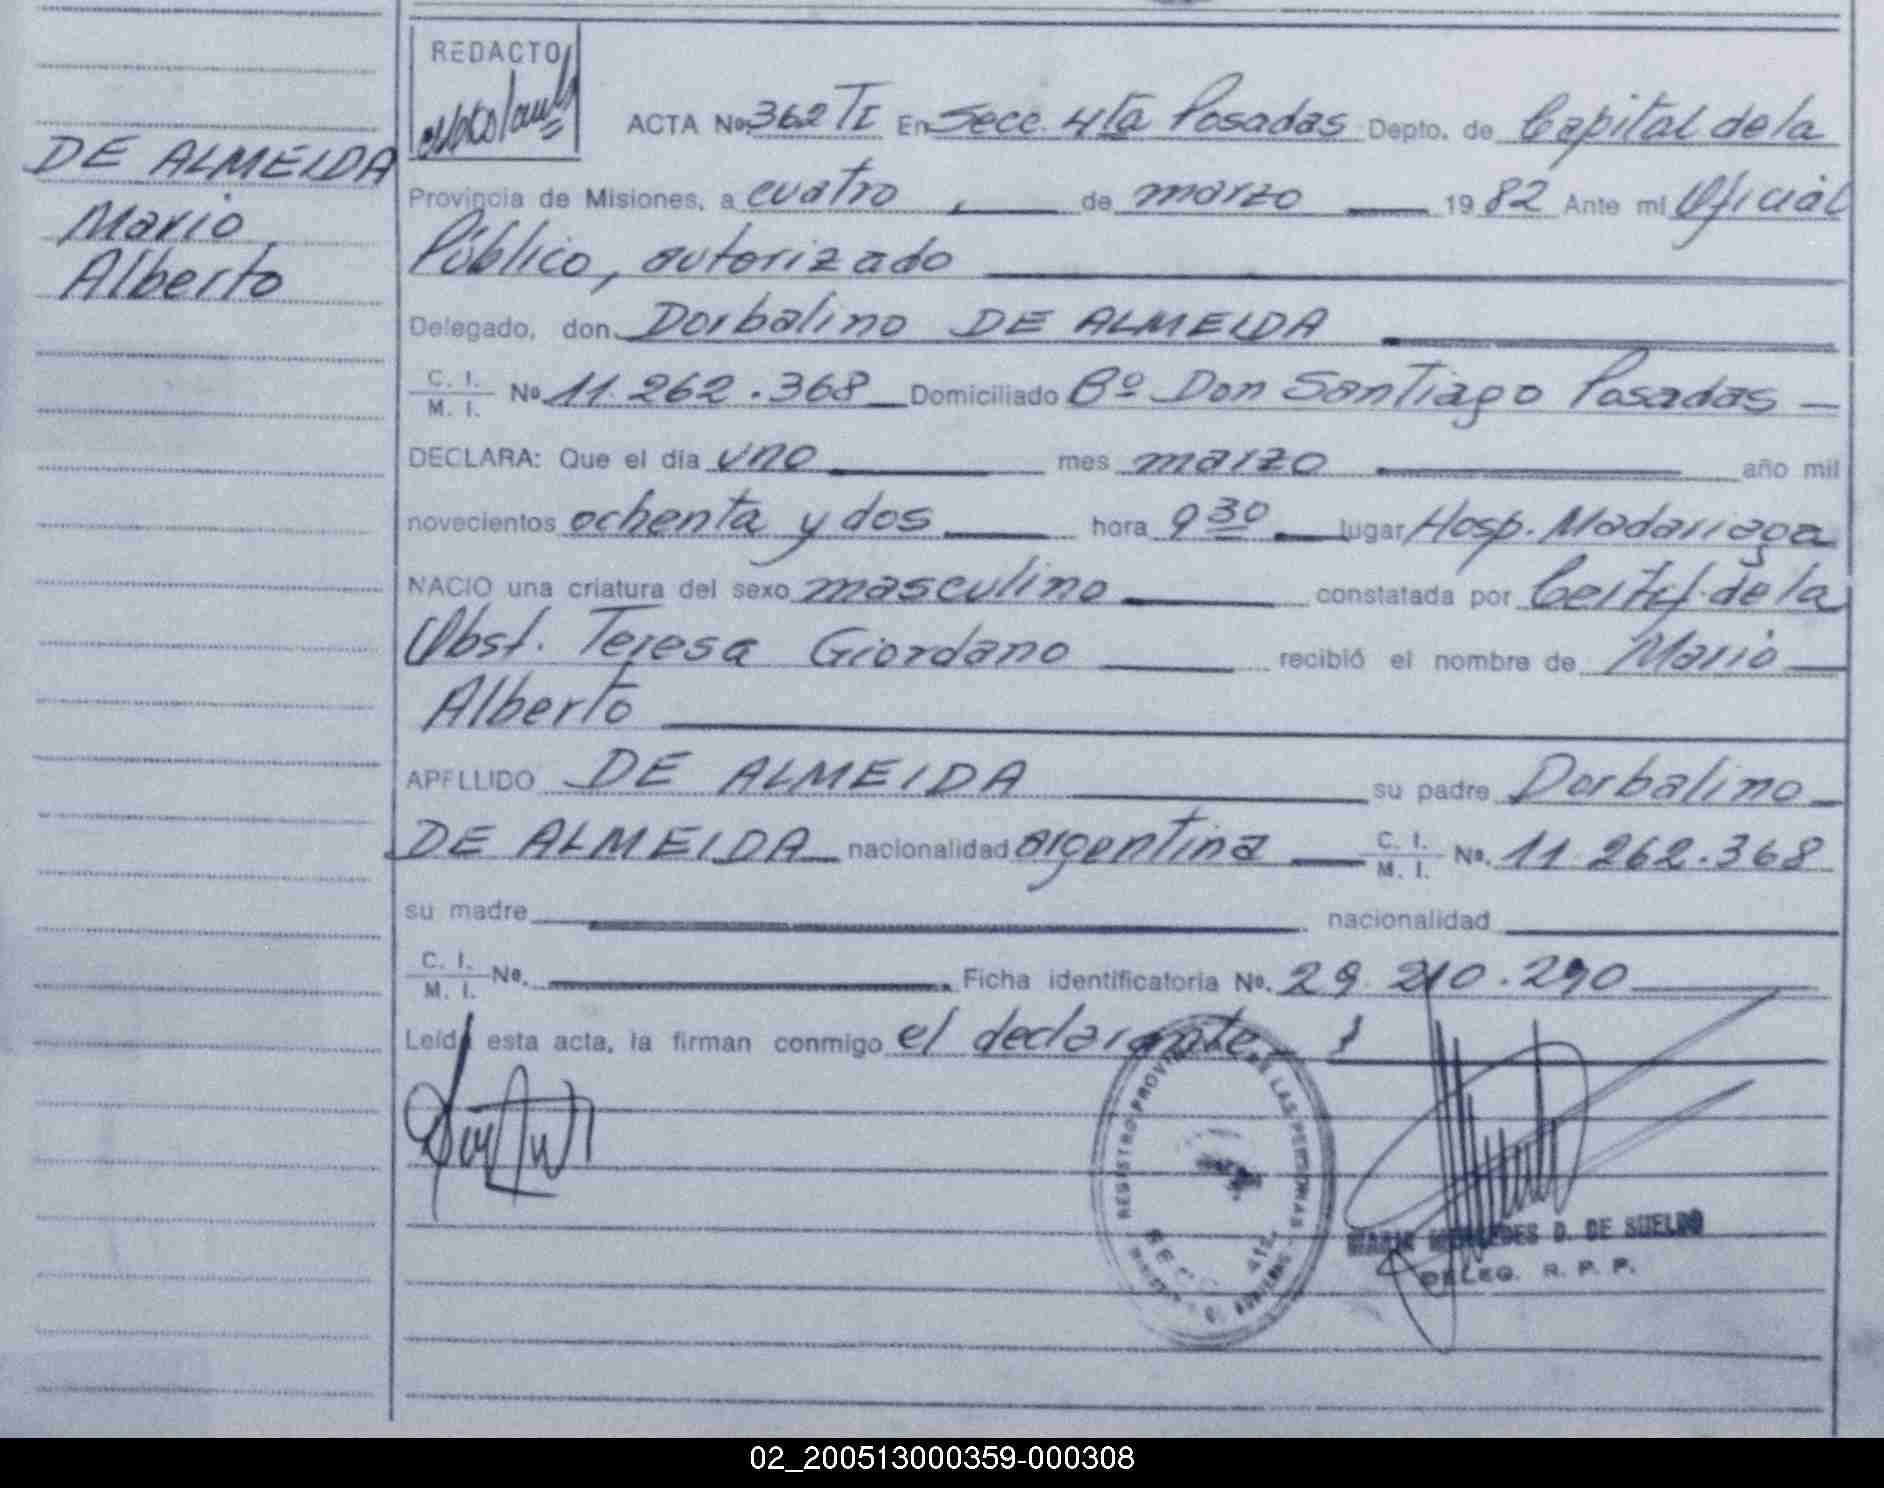 DE ALMEIDA
Mario
Alberto
REDACTO
ACTA No. 362 TI En Secc. 4ta Posadas Depto. de Capital de la
Provincia de Misiones, a cuatro de marzo 1982 Ante mi Oficial
Público, autorizado
Delegado, don Dorbalino DE ALMEIDA
C. I. / M. I. No 11.262.368 Domiciliado Bº Don Santiago Posadas
DECLARA: Que el día uno mes marzo año mil
novecientos ochenta y dos hora 9 30 lugar Hosp. Madariaga
NACIO una criatura del sexo masculino constatada por Certif. de la
Obst. Teresa Giordano recibió el nombre de Mario
Alberto
APELLIDO DE ALMEIDA su padre Dorbalino
DE ALMEIDA nacionalidad argentina C. I. / M. I. No. 11.262.368
su madre nacionalidad
C. I. / M. I. No. Ficha identificatoria No. 29.210.290
Leída esta acta, la firman conmigo el declarante
REGISTRO PROVINCIAL DE LAS PERSONAS
MARIA MERCEDES D. DE SUELDO
DELEG. R. P. P.
02_200513000359-000308